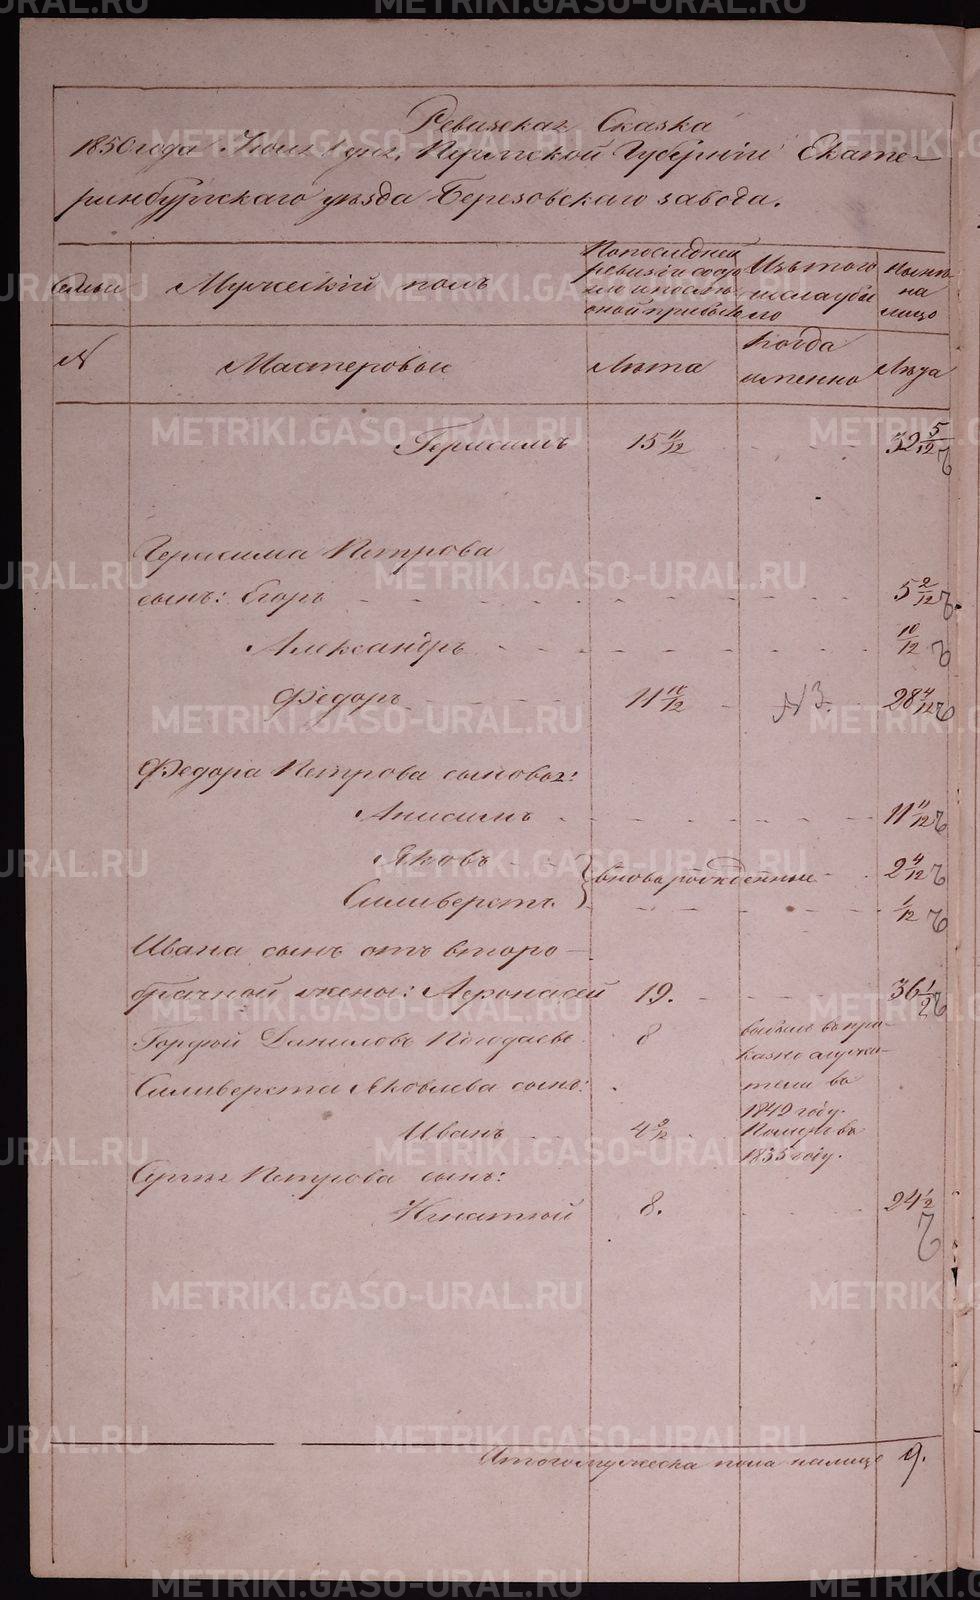 Ревизская Сказка
1850 года Июня 1 дня, Пермской Губерніи Екате-
ринбургскаго уѣзда Березовскаго завода.
Семьи
Мужескій полъ
По последней
ревизіи состо
яло и после
оной прибыло
Изъ того
числа убы
ло
Ныне
на
лицо
N
Мастеровые
Лѣта
Когда
именно
Лѣта
Герасимъ 15 11/12 32 5/12
Герасима Петрова
сынъ: Егоръ 5 2/12
Александръ 10/12
Федоръ 11 10/12 N3. 28 4/12
Федора Петрова сыновья:
Анисимъ 11 11/12
Яковъ вновь рожденные 2 4/12
Силиверстъ 1/12
Ивана сынъ отъ второ-
брачной жены: Афонасей 19. 36 1/2
Гордей Даниловъ 8
выбылъ въ при-
казно служи-
тели въ
1849 году.
Силиверста Яковлева сынъ:
Иванъ 4
Померъ въ
1835 году.
Петрова сынъ:
Игнатей 8. 24 1/2
Итого мужеска пола на лицо 9.
METRIKI.GASO-URAL.RU